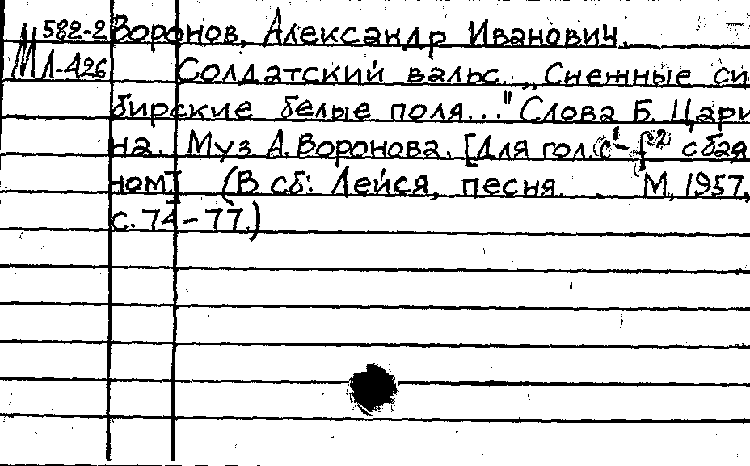 М 582-2 Воронов, Александр Иванович.
МЛ-426 Солдатский вальс. „Снежные си
бирские белые поля..." Слова Б. Цари
на. Муз А. Воронова. [Для гол. (c¹-f²) с бая
ном] (В сб: Лейся, песня. М, 1957,
с. 74-77.)